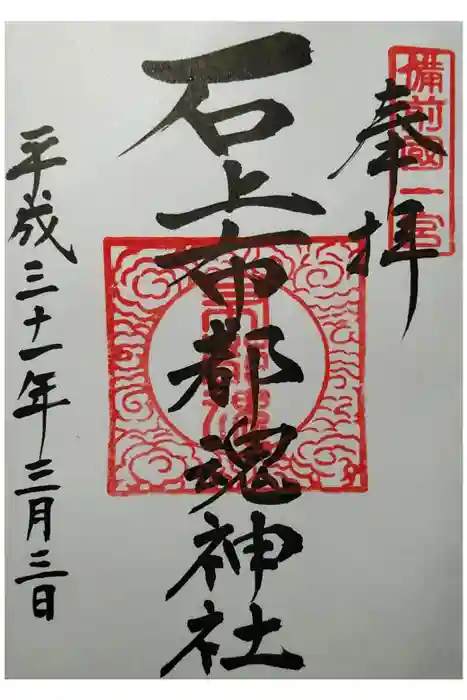 備前國一宮
奉拝
石上布都魂神社
平成三十一年三月三日